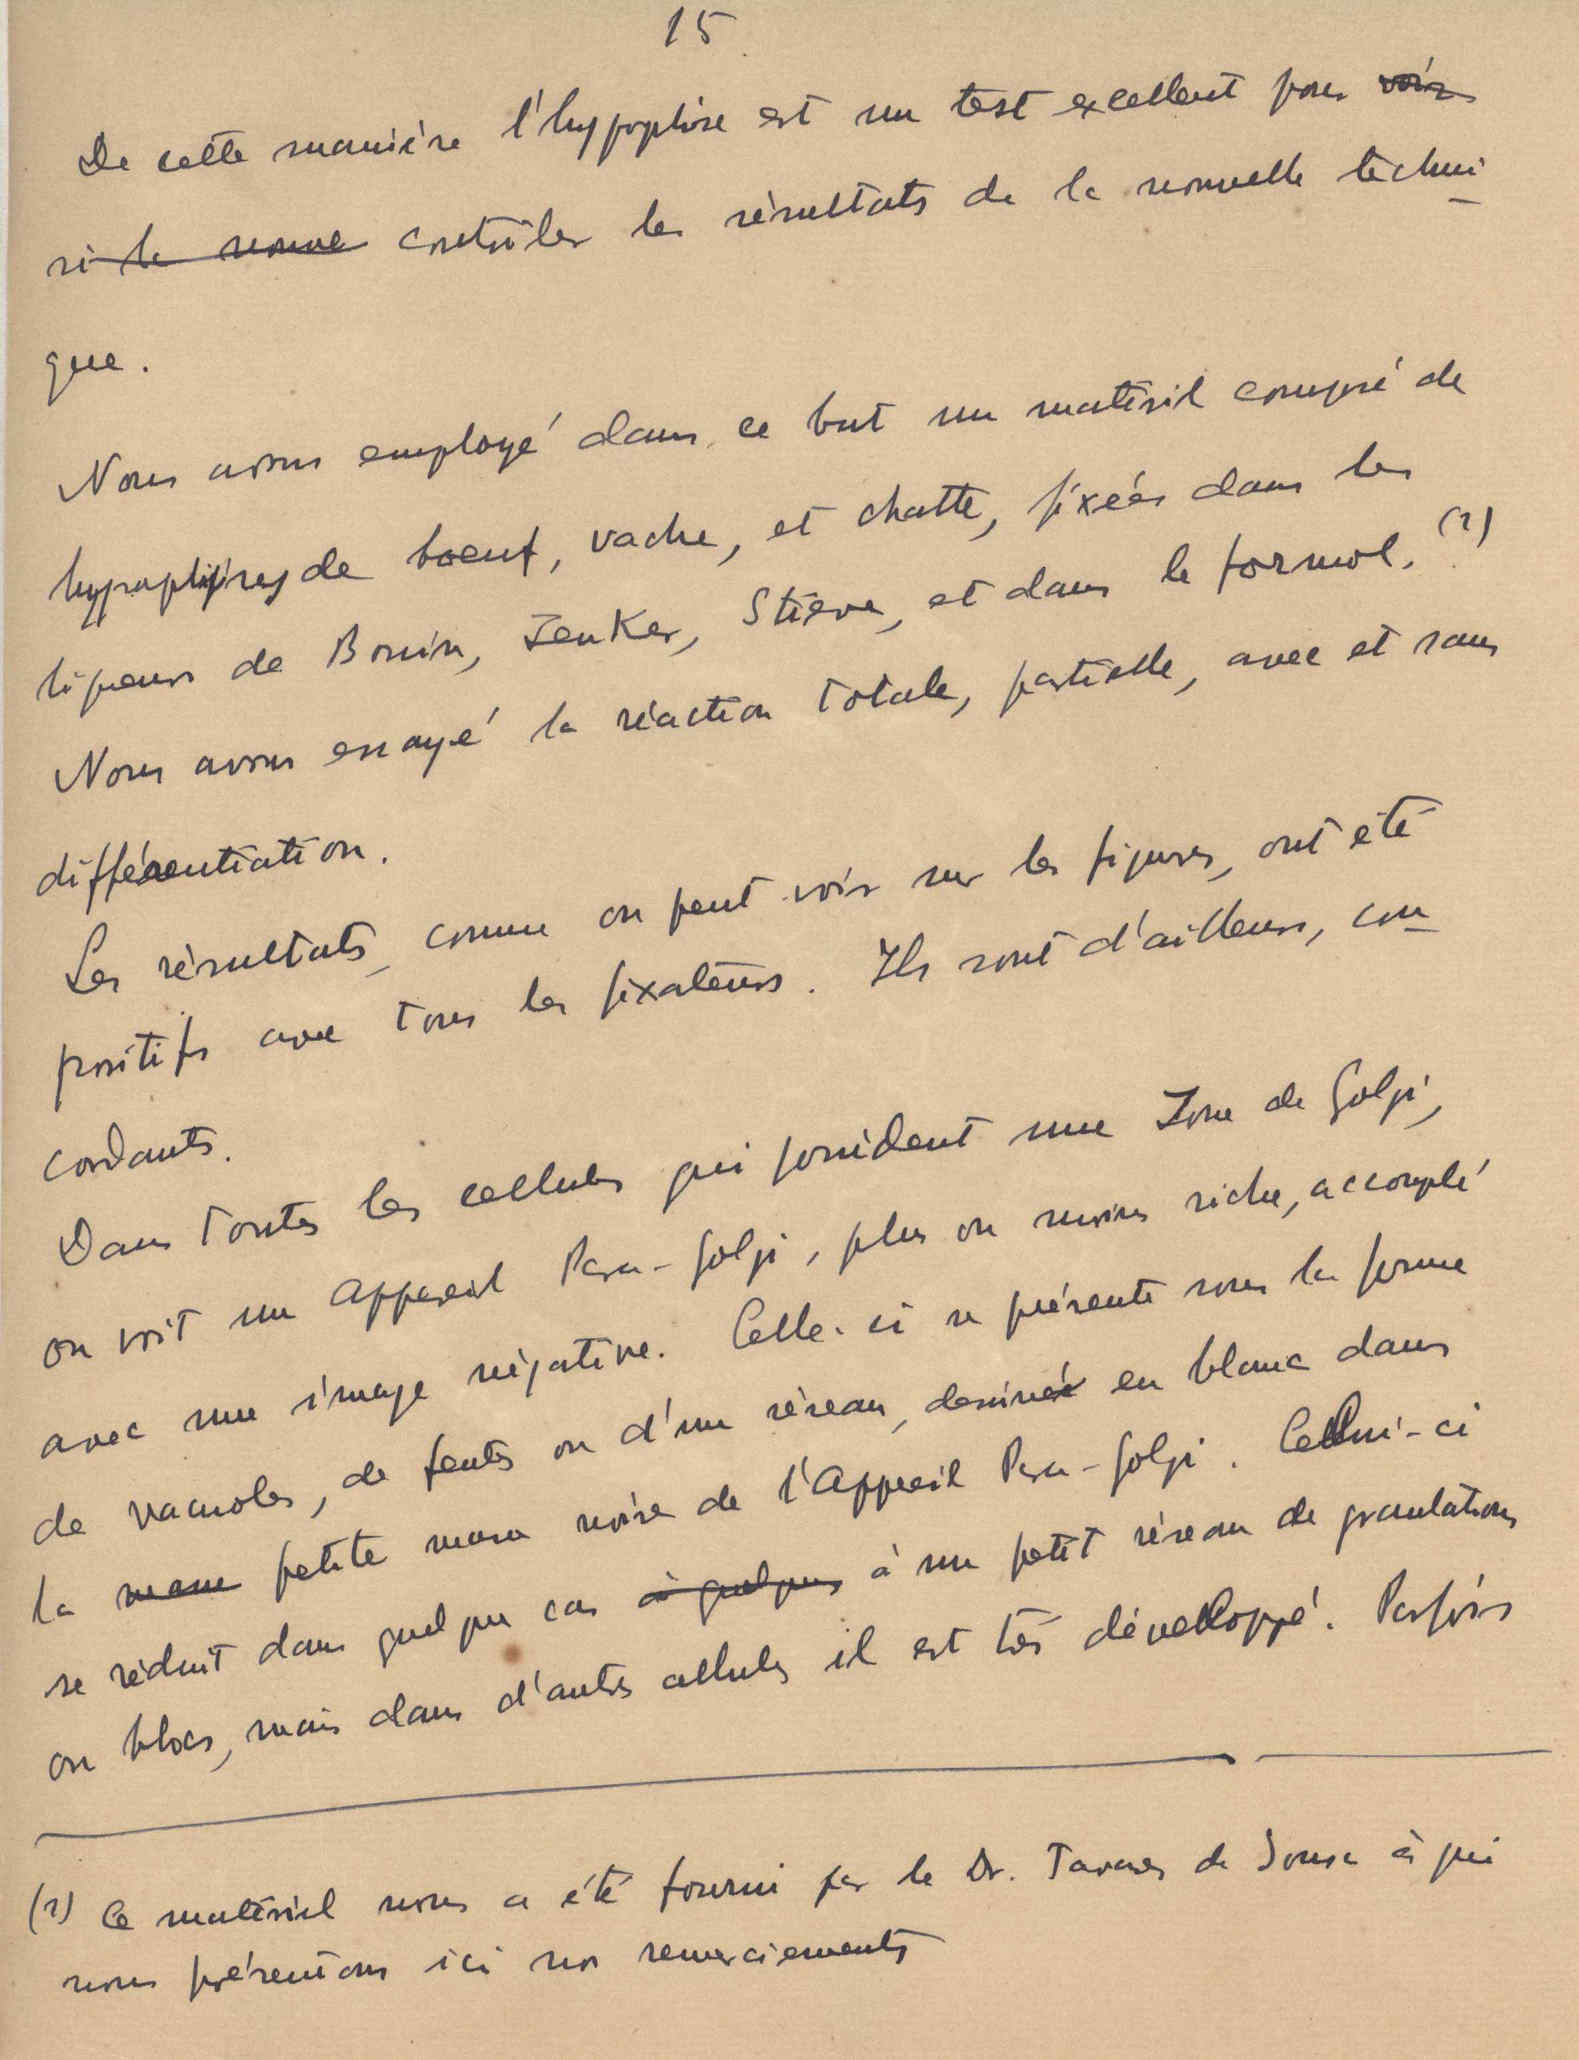 15
De cette manière l'hypophise est un test excellent pour voir
si la nouve contrôler les résultats de la nouvelle techni-
que.
Nous avons employé dans ce but un matériel composé de
hypophises de boeuf, vache, et chatte, fixées dans les
liqueurs de Bouin, Zenker, Stieve, et dans le formol. (1)
Nous avons essayé la réaction totale, partielle, avec et sans
différentiation.
Les résultats, comme on peut voir sur les figures, ont été
positifs avec tous les fixateurs. Ils sont d'ailleurs, con-
cordants.
Dans toutes les cellules qui possèdent une Zone de Golgi,
on voit un Appareil Para-Golgi, plus ou moins riche, accouplé
avec une image négative. Celle-ci se présente sous la forme
de vacuoles, de fentes ou d'un réseau, dessiné en blanc dans
la masse petite masse noire de l'Appareil Para-Golgi. Cellui-ci
se réduit dans quelques cas à quelques à un petit réseau de granulations
ou blocs, mais dans d'autres cellules il est très développé. Parfois
(1) Ce matériel nous a été fourni par le Dr. Tavares de Sousa à qui
nous présentons ici nos remerciements